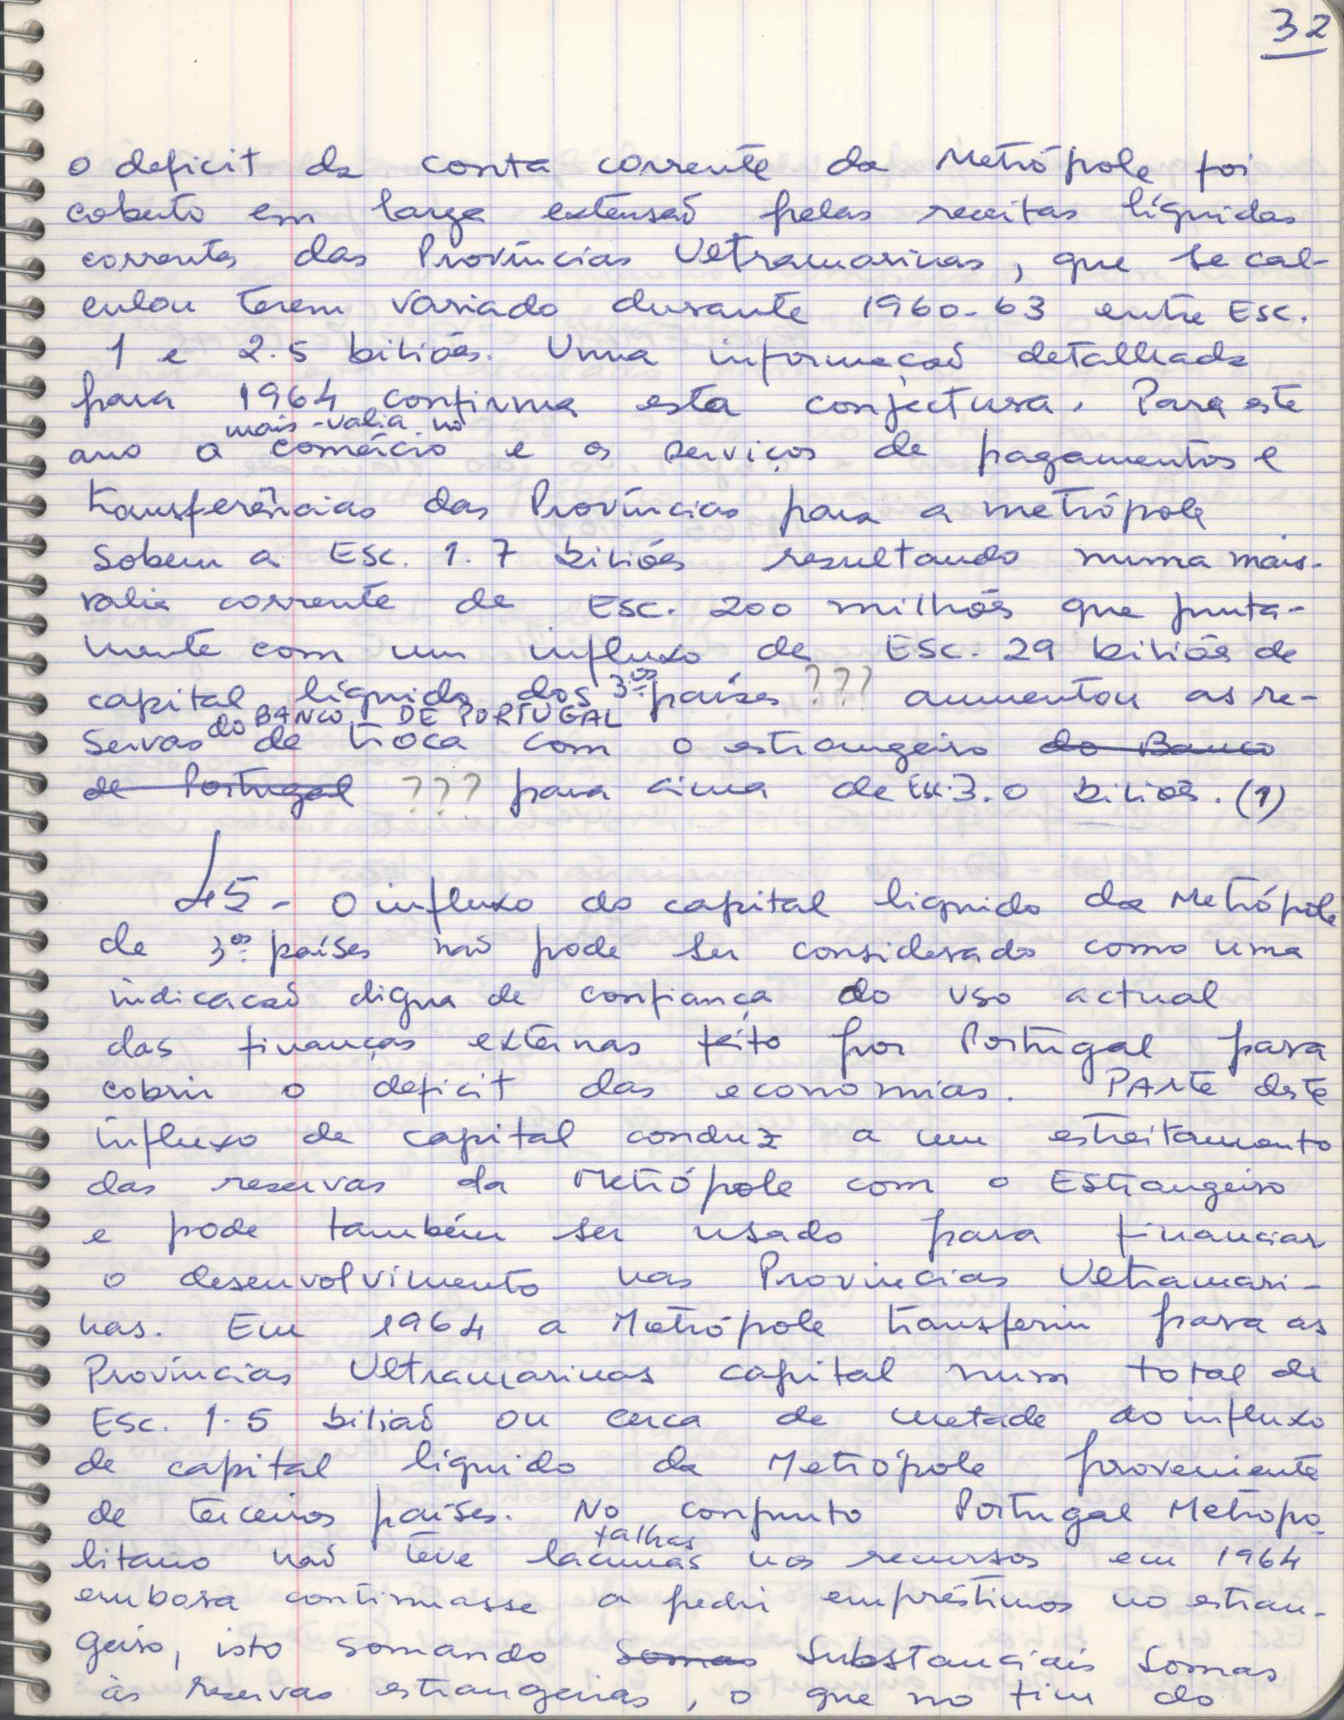 32
o deficit da conta corrente da Metrópole foi
coberto em larga extensaõ pelas receitas líquidas
correntes das Províncias Ultramarinas, que se cal-
culou terem variado durante 1960-63 entre Esc.
1 e 2.5 biliões. Uma informaçaõ detalhada
para 1964 confirma esta conjectura. Para este
mais-valia no
ano o comércio e os serviços de pagamentos e
transferências das Províncias para a metrópole
sobem a Esc. 1.7 biliões resultando numa mais-
valia corrente de Esc. 200 milhões que junta-
mente com um influxo de Esc. 29 biliões de
capital líquido dos 3os países ??? aumentou as re-
do BANCO DE PORTUGAL
servas de troca com o estrangeiro do Banco
de Portugal ??? para cima de Esc. 3.0 biliões. (1)
45 - O influxo do capital liquido da Metrópole
de 3os países naõ pode ser considerado como uma
indicacaõ digna de confiança do uso actual
das finanças externas feito por Portugal para
cobrir o deficit das economias. PArte deste
influxo de capital conduz a um estreitamento
das reservas da Metrópole com o Estrangeiro
e pode também ser usado para financiar
o desenvolvimento nas Províncias Ultramari-
nas. Em 1964 a Metrópole transferiu para as
Províncias Ultramarinas capital num total de
Esc. 1.5 biliaõ ou cerca de metade do influxo
de capital líquido da Metrópole proveniente
de terceiros países. No conjunto Portugal Metropo-
falhas
litano naõ teve lacunas nos recursos em 1964
embora continuasse a pedir empréstimos no estran-
geiro, isto somando somas substanciais somas
às reservas estrangeiras, o que no fim do